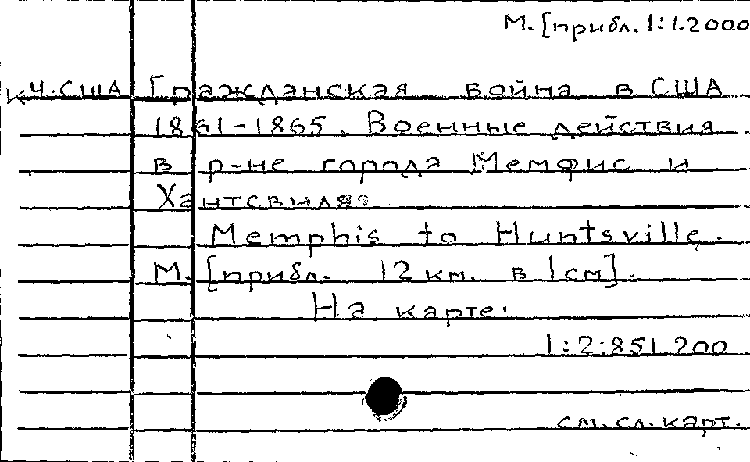 М. [прибл. 1:1.2000
к Ч. США Гражданская война в США
1861-1865. Военные действия
в р-не города Мемфис и
Хантсвилл
Memphis to Huntsville.
М. [прибл. 12 км. в 1 см].
На карте:
1:2:851.200
см. сл. карт.